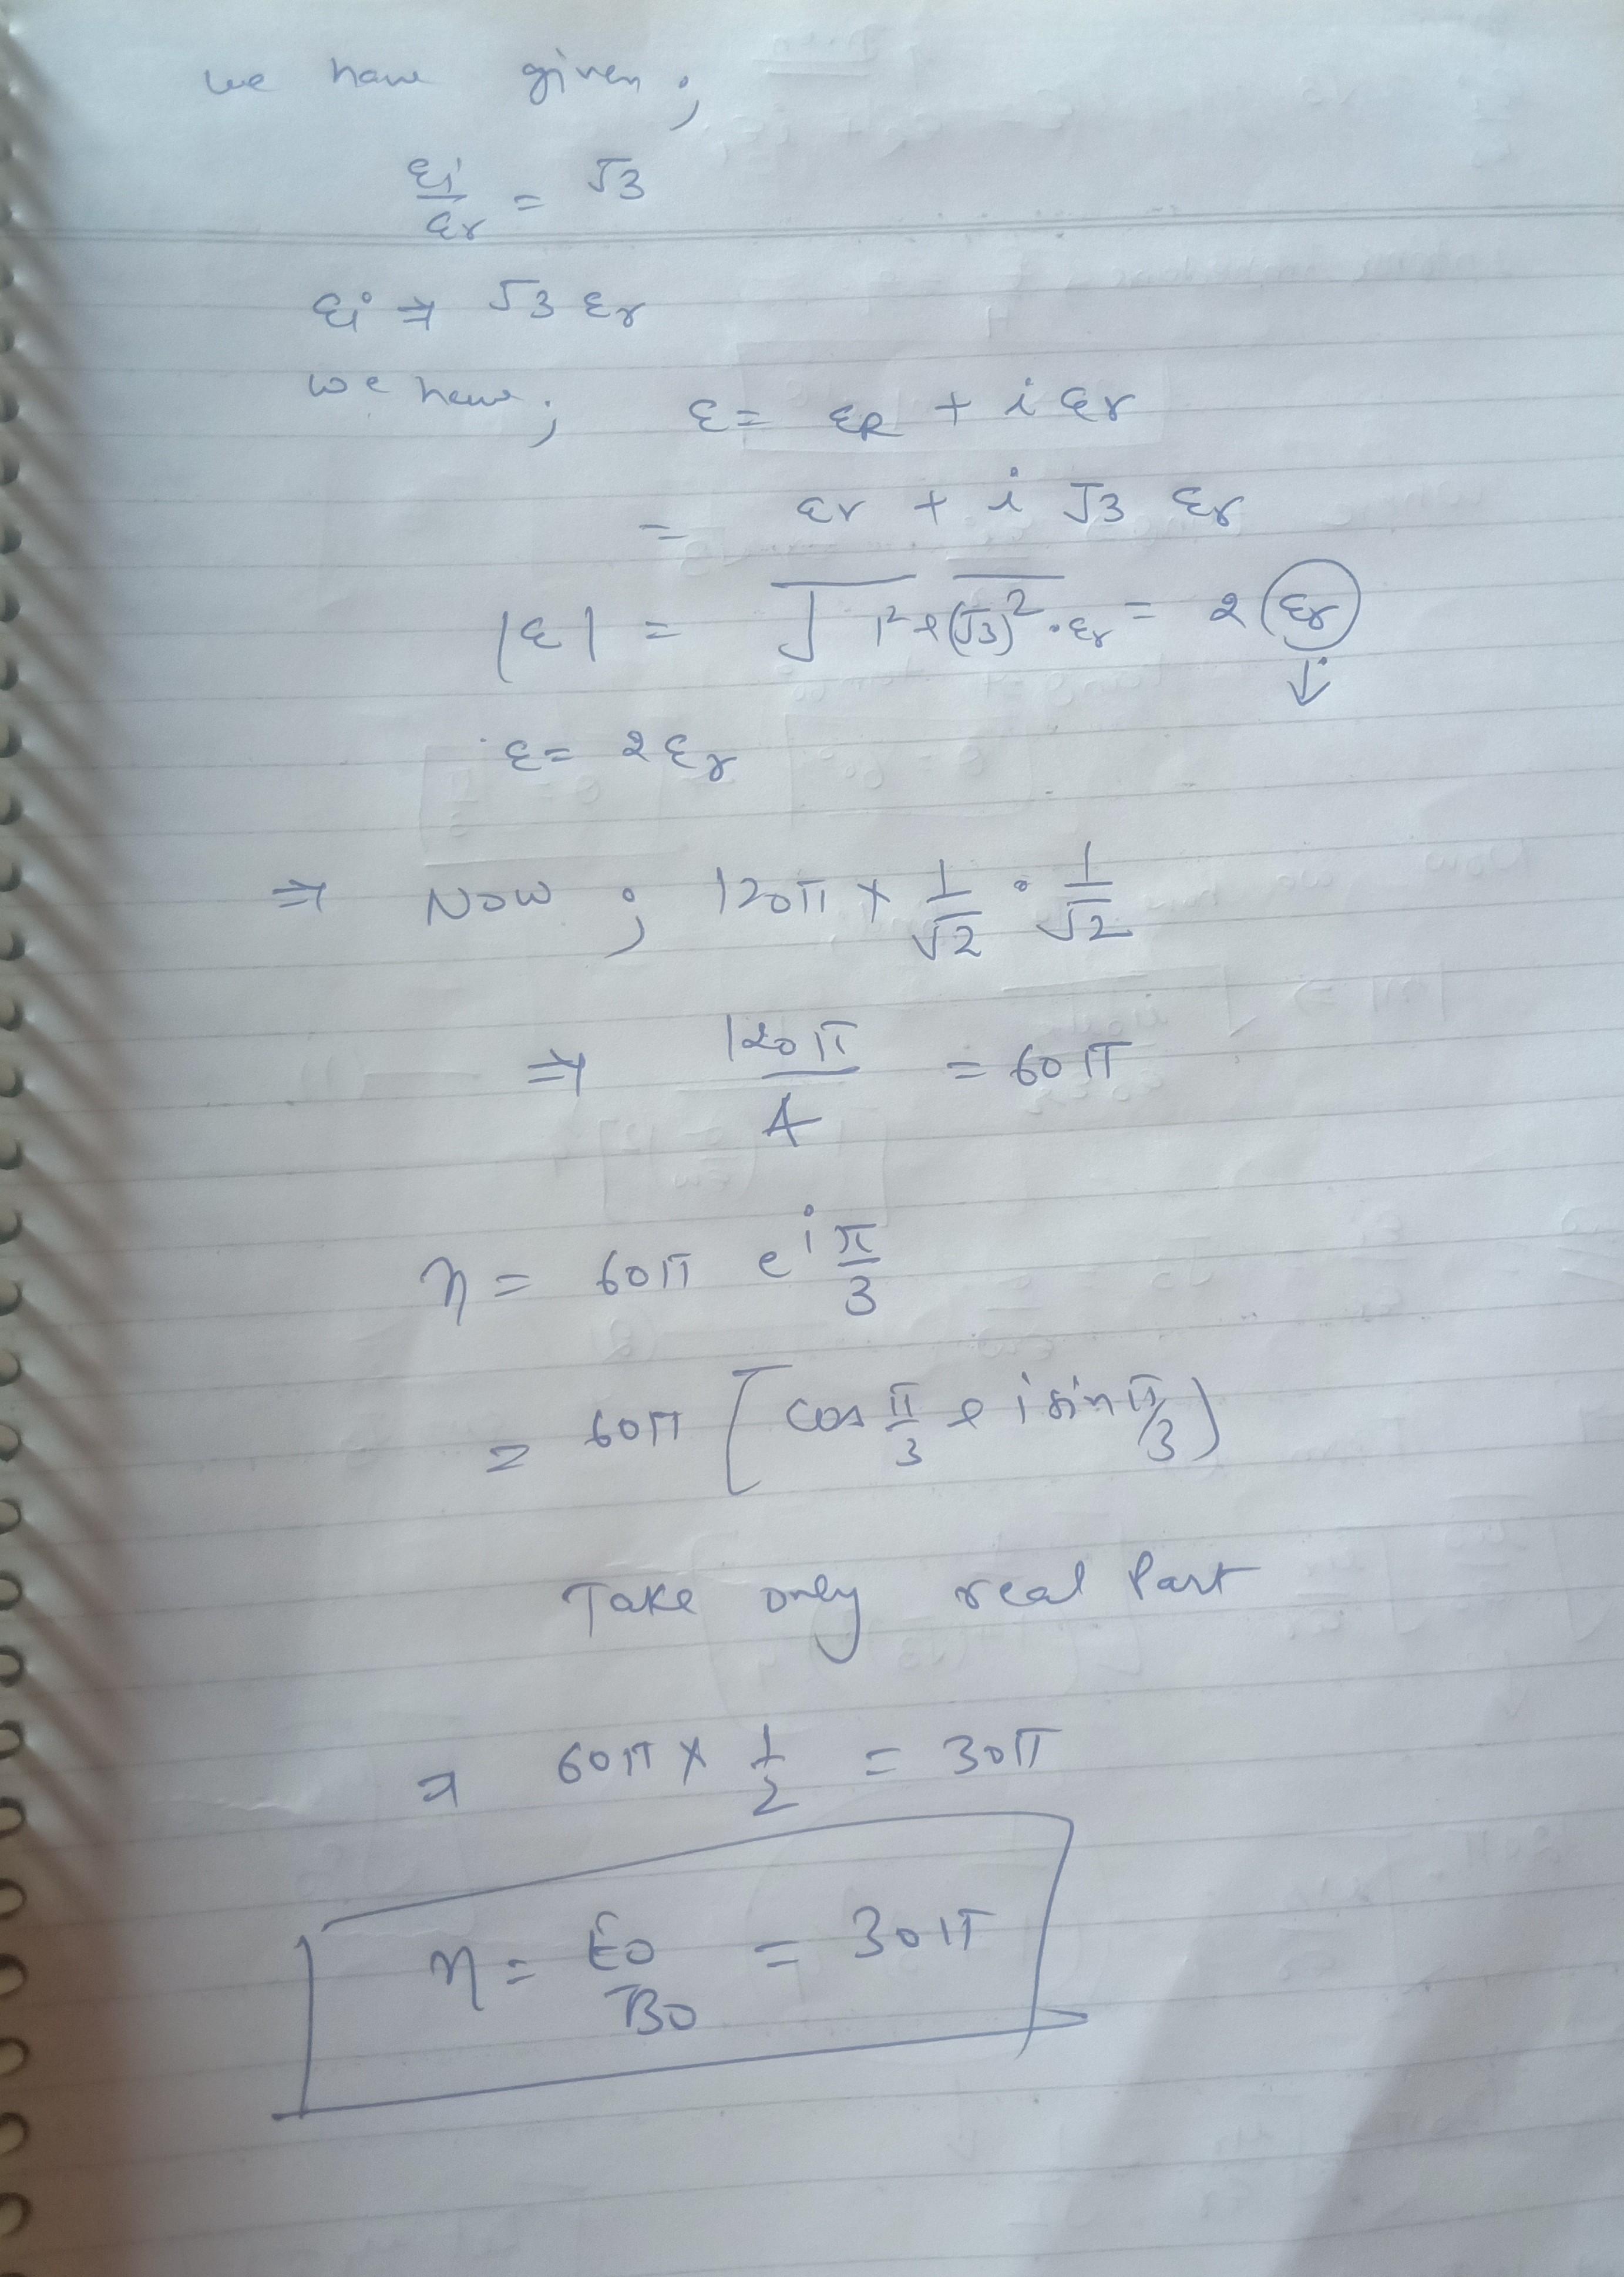 we have given ;
εi / εr = √3
εi ⇒ √3 εr
we have ; ε = εR + i εr
= εr + i √3 εr
|ε| = √ 1² + (√3)² . εr = 2 εr ↓
ε = 2 εr
⇒ Now ; 120π × 1/√2 . 1/√2
⇒ 120π / = 60π
η = 60π e^i π/3
= 60π [ cos π/3 + i sin π/3 )
Take only real Part
⇒ 60π × 1/2 = 30π
η = E0 / B0 = 30π